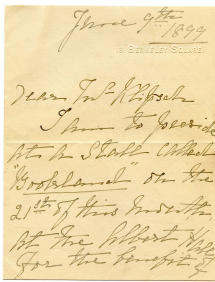 June 9th
1899
18 BERKELEY SQUARE
Dear Mr Klipsch
I am to preside
at a Stall called
"Bookland" on the
21st of this month
at the Albert Hall
for the benefit of